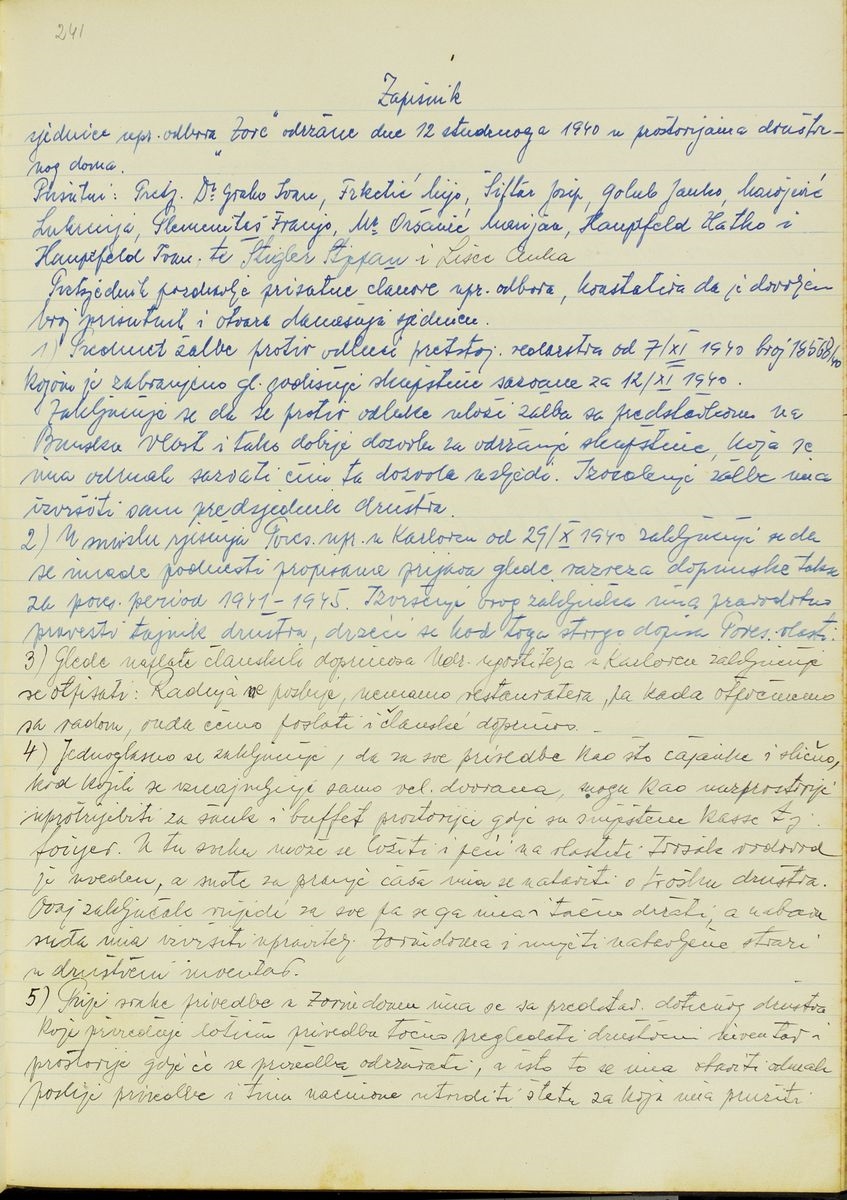 241
Zapisnik
sjednice upr. odbora "Zore" održane dne 12 studenoga 1940 u prostorijama društve-
nog doma.
Prisutni: Pretsj. Dr Grahor Ivan, Frketić Mijo, Šiftar Josip, Golub Janko,
Lukrecija, Slemenitaš Franjo, Mr Oršanić Marijan, Hauptfeld Hatko i
Hauptfeld Ivan. te Štigler Stjepan i Lišec Anka
Pretsjednik pozdravlja prisutne članove upr. odbora, konstatira da je dovoljan
broj prisutnih i otvara današnju sjednicu.
1) Predmet žalbe protiv odluke pretstoj. redarstva od 7/XI 1940 broj 18568/40
kojom je zabranjeno gl. godišnje skupštine sazvane za 12/XI 1940.
Zaključuje se da se protiv odluke uloži žalba sa predstavkom na
Bansku vlast i tako dobije dozvola za održanje skupštine, koja se
ima odmah sazvati čim ta dozvola uslijedi. žalbe ima
izvršiti sam predsjednik društva.
2) U smislu rješenja Pores. upr. u Karlovcu od 29/X 1940 zaključuje se da
se imade podnesti propisana prijava glede razreza dopunske takse
za pores. period 1941-1945. Izvršenje ovog zaključka ima pravodobno
provesti tajnik društva, držeći se kod toga strogo dopisa Pores. vlasti.
3) Glede naplate članskih doprinosa Udr. ugostitelja u Karlovcu zaključuje
se otpisati: Radnja ne posluje, nemamo restauratera, pa kada otpočnemo
sa radom, onda ćemo poslati i članske doprinos. -
4) Jednoglasno se zaključuje, da za sve priredbe kao što čajanke i slično,
kod kojih se iznajmljuje samo vel. dvorana, mogu kao nuzprostorije
upotrijebiti za šank i buffet prostorije gdje su smještene kasse t j.
foajer. U tu svrhu može se ložiti i peć na vlastiti trošak vodovod
je uveden, a suđe za pranje čaša ima se nabaviti o trošku društva.
Ovaj zaključak vrijedi za sve pa se ga ima točno držati, a nabavu
suđa ima izvršiti upravitelj Zorindoma i unijeti nabavljene stvari
u društveni inventar.
5) Prije svake privedbe u Zorindomu ima se sa predstav. dotičnog društva
koje priređuje priredbu točno pregledati društveni inventar i
prostorije gdje će se priredba održavati, a isto to se ima obaviti odmah
poslije priredbe i tim načinom utvrditi štetu za koju ima pružiti